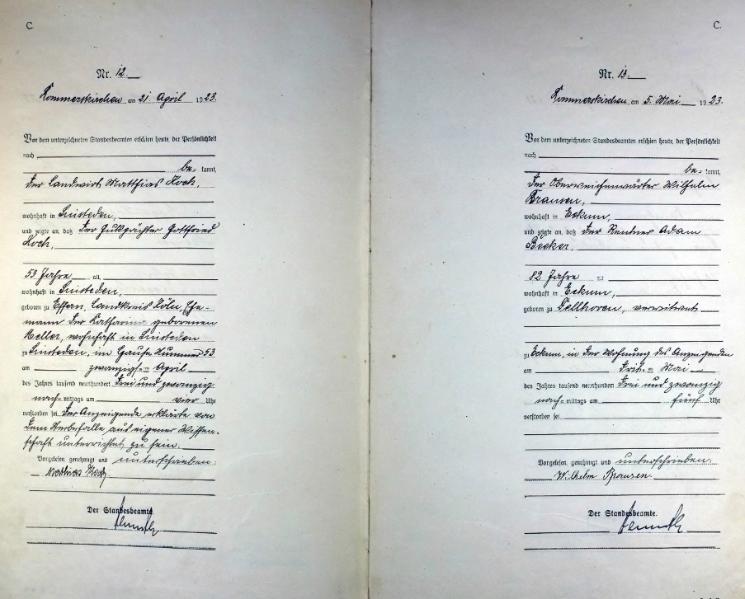 C.
Nr. 12.
Rommerskirchen am 21 April 1923.
Vor dem unterzeichneten Standesbeamten erschien heute, der Persönlichkeit
nach
be- kannt,
Der Landwirt Matthias Koch,
wohnhaft in Sinsteden,
und zeigte an, daß Der Gutspächter Gottfried
Koch,
53 Jahre
wohnhaft in Sinsteden,
geboren zu Efferen, Landkreis Köln, Ehe-
mann der Katharina geborenen
wohnhaft in Sinsteden
zu Sinsteden, im Hause Nummer 53
am zwanzigsten April
des Jahres tausend neunhundert drei und zwanzig
nach-mittags um vier Uhr
verstorben sei. Der Anzeigende erklärte von
dem Sterbefalle aus eigener Wissen-
schaft unterrichtet zu sein.
Vorgelesen, genehmigt und unterschrieben.
Mathias Koch
Der Standesbeamte.
C.
Nr. 13.
Rommerskirchen am 5. Mai 1923.
Vor dem unterzeichneten Standesbeamten erschien heute, der Persönlichkeit
nach
be- kannt,
Der Oberweichenwärter Wilhelm
wohnhaft in Eckum,
und zeigte an, daß Der Rentner Adam
Becker,
82 Jahre
wohnhaft in Eckum,
geboren zu verwitwet
zu Eckum, in der Wohnung des Anzeigenden
am Mai
des Jahres tausend neunhundert drei und zwanzig
nach-mittags um fünf Uhr
verstorben sei
Vorgelesen, genehmigt und unterschrieben.
Wilhelm
Der Standesbeamte.